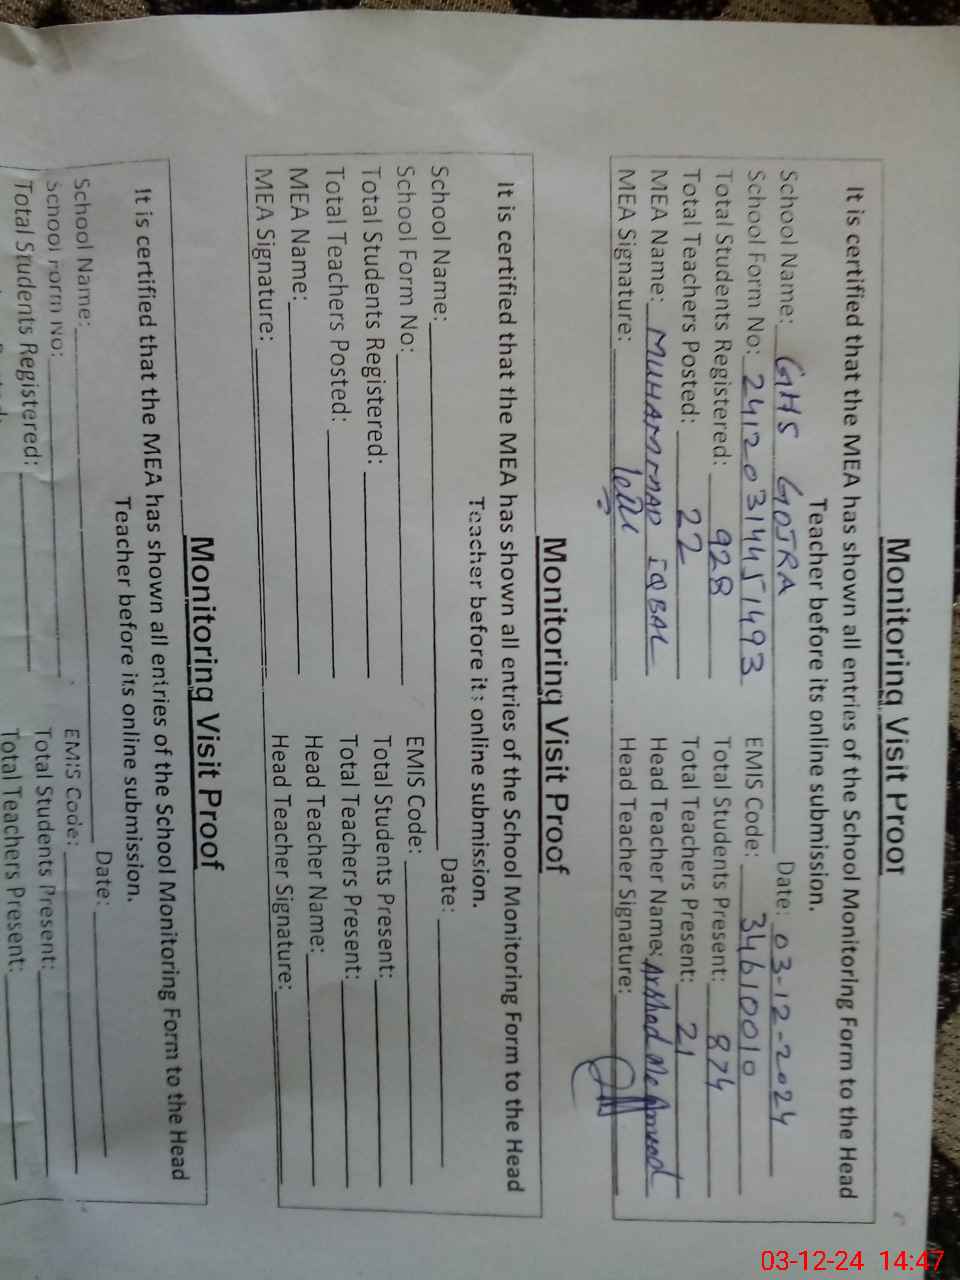 Monitoring Visit Proof
It is certified that the MEA has shown all entries of the School Monitoring Form to the Head
Teacher before its online submission.
School Name: GHS GOJRA Date: 03-12-2024
School Form No: 24120314451493 EMIS Code: 34610010
Total Students Registered: 928 Total Students Present: 874
Total Teachers Posted: 22 Total Teachers Present: 21
MEA Name: MUHAMMAD IQBAL Head Teacher Name: Arshad Mehmood
MEA Signature: Head Teacher Signature:
Monitoring Visit Proof
It is certified that the MEA has shown all entries of the School Monitoring Form to the Head
Teacher before its online submission.
School Name: Date:
School Form No: EMIS Code:
Total Students Registered: Total Students Present:
Total Teachers Posted: Total Teachers Present:
MEA Name: Head Teacher Name:
MEA Signature: Head Teacher Signature:
Monitoring Visit Proof
It is certified that the MEA has shown all entries of the School Monitoring Form to the Head
Teacher before its online submission.
School Name: Date:
School Form No: EMIS Code:
Total Students Registered: Total Students Present:
Total Teachers Present:
03-12-24 14:47